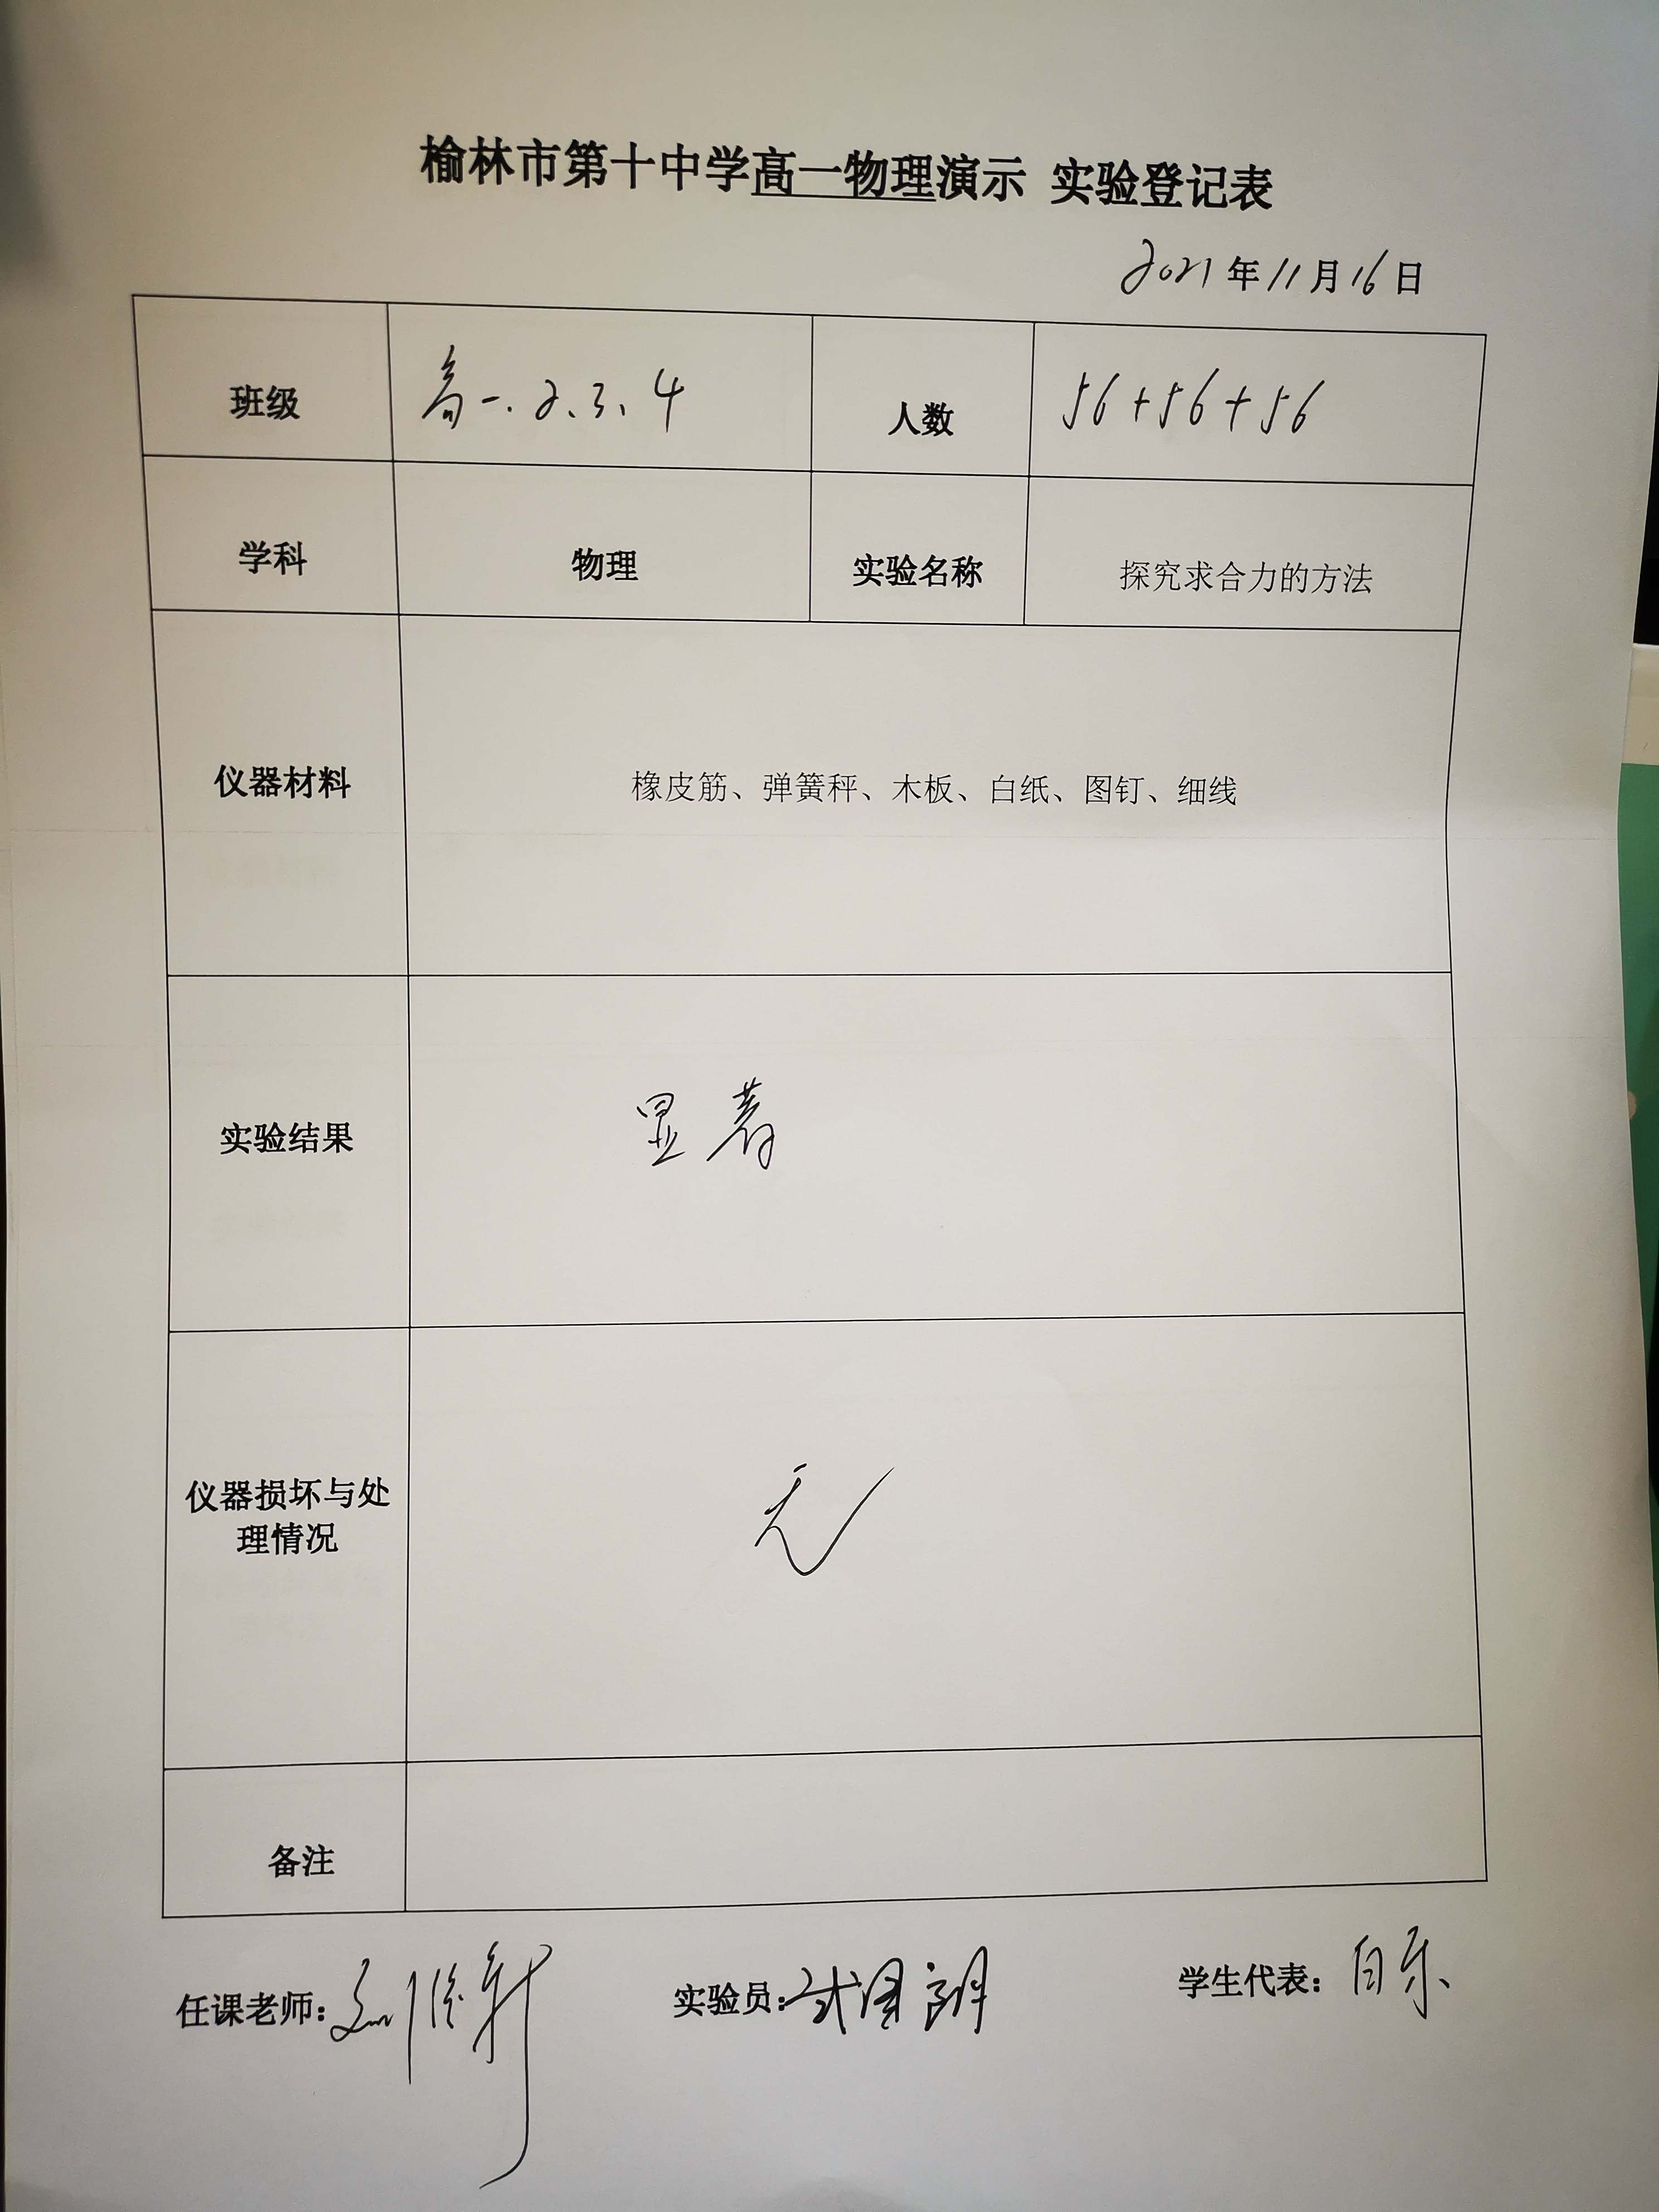 榆林市第十中学高一物理演示 实验登记表
2021年11月16日
班级 高一.2、3、4 人数 56+56+56
学科 物理 实验名称 探究求合力的方法
仪器材料 橡皮筋、弹簧秤、木板、白纸、图钉、细线
实验结果 显著
仪器损坏与处
理情况 无
备注
任课老师:
实验员:
学生代表: 白乐